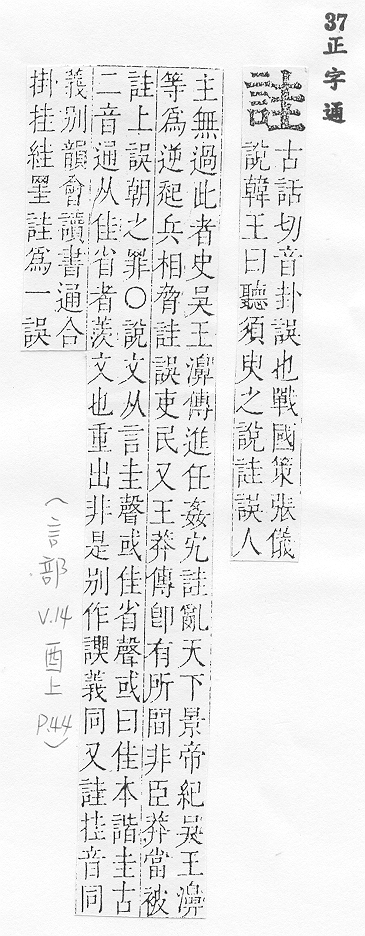 37正字通
詿
古話切音卦誤也戰國策張儀
說韓王曰聽須臾之說詿誤人
主無過此者史吳王濞傳進任姦宄詿亂天下景帝紀吳王濞
等為逆起兵相脅詿誤吏民又王莽傳卽有所間非臣莽當被
詿上誤朝之罪〇說文从言圭聲或佳省聲或曰佳本諧圭古
二音通从佳省者羨文也重出非是别作義同又詿挂音同
義别韻會讀書通合
掛挂絓罣詿爲一誤
(言部 V.14 酉上 P.44)